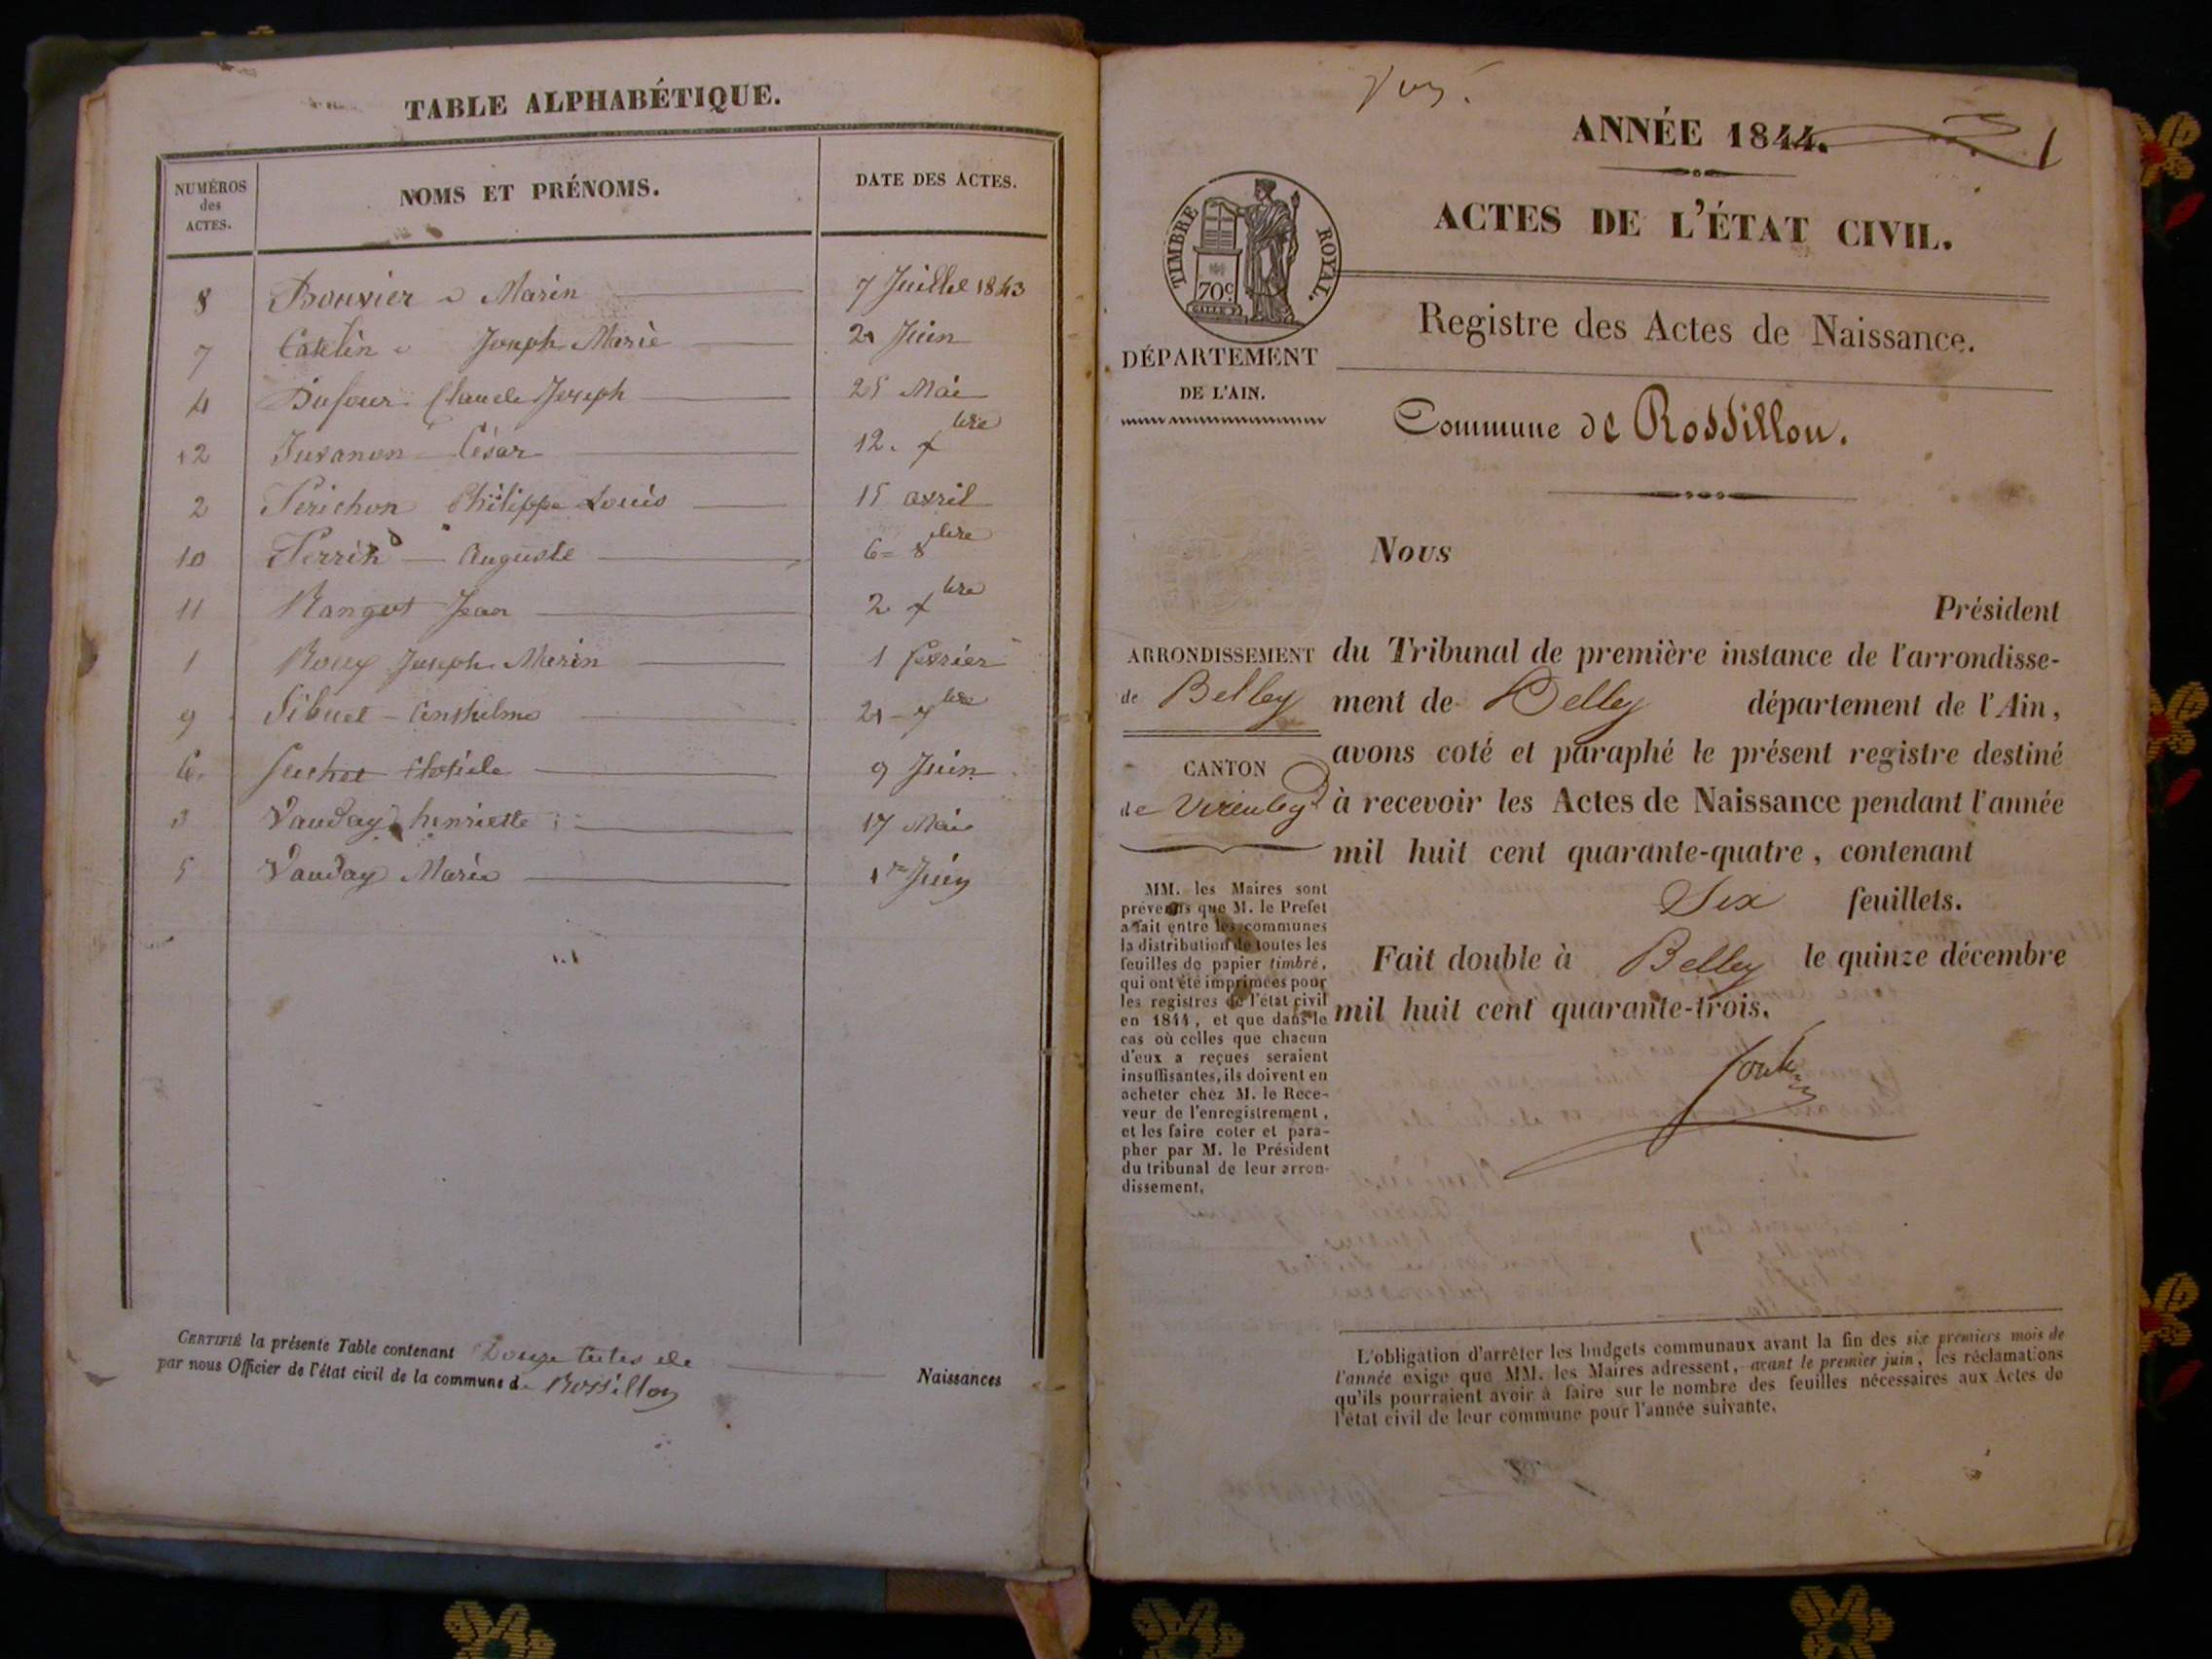 TABLE ALPHABÉTIQUE.
NUMÉROS des ACTES.
NOMS ET PRÉNOMS.
DATE DES ACTES.
8 Bouvier Marin 7 Juillet 1843
7 Catelin Joseph Marie 21 Juin
4 Dufour Claude Joseph 25 Mai
12 Juvanon César 12. xbre
2 Perichon Philippe Louis 15 avril
10 Perrin Auguste 6 = 8bre
11 Rangot Jean 2 xbre
1 Roux Joseph Marin 1 février
9 Sibuet - Anthelme 21 - 7bre
6. Suchet 9 Juin
3 Vauday henriette 17 Mai
5 Vauday Marie 1er Juin
CERTIFIÉ la présente Table contenant Douze actes de Naissances
par nous Officier de l'état civil de la commune de Rossillon
ANNÉE 1844.
1
ACTES DE L'ÉTAT CIVIL.
TIMBRE ROYAL.
70c.
Registre des Actes de Naissance.
DÉPARTEMENT
DE L'AIN.
Commune de Rossillon.
Nous
Président
ARRONDISSEMENT
de Belley
CANTON
de Virieu le gd
du Tribunal de première instance de l'arrondisse-
ment de Belley département de l'Ain,
avons coté et paraphé le présent registre destiné
à recevoir les Actes de Naissance pendant l'année
mil huit cent quarante-quatre, contenant
Six feuillets.
Fait double à Belley le quinze décembre
mil huit cent quarante-trois.
MM. les Maires sont
prévenus que M. le Prefet
a fait entre les communes
la distribution de toutes les
feuilles de papier timbré,
qui ont été imprimées pour
les registres de l'état civil
en 1844, et que dans le
cas où celles que chacun
d'eux a reçues seraient
insuffisantes, ils doivent en
acheter chez M. le Rece-
veur de l'enregistrement,
et les faire coter et para-
pher par M. le Président
du tribunal de leur arron-
dissement.
L'obligation d'arrêter les budgets communaux avant la fin des six premiers mois de
l'année exige que MM. les Maires adressent, avant le premier juin, les réclamations
qu'ils pourraient avoir à faire sur le nombre des feuilles nécessaires aux Actes de
l'état civil de leur commune pour l'année suivante.